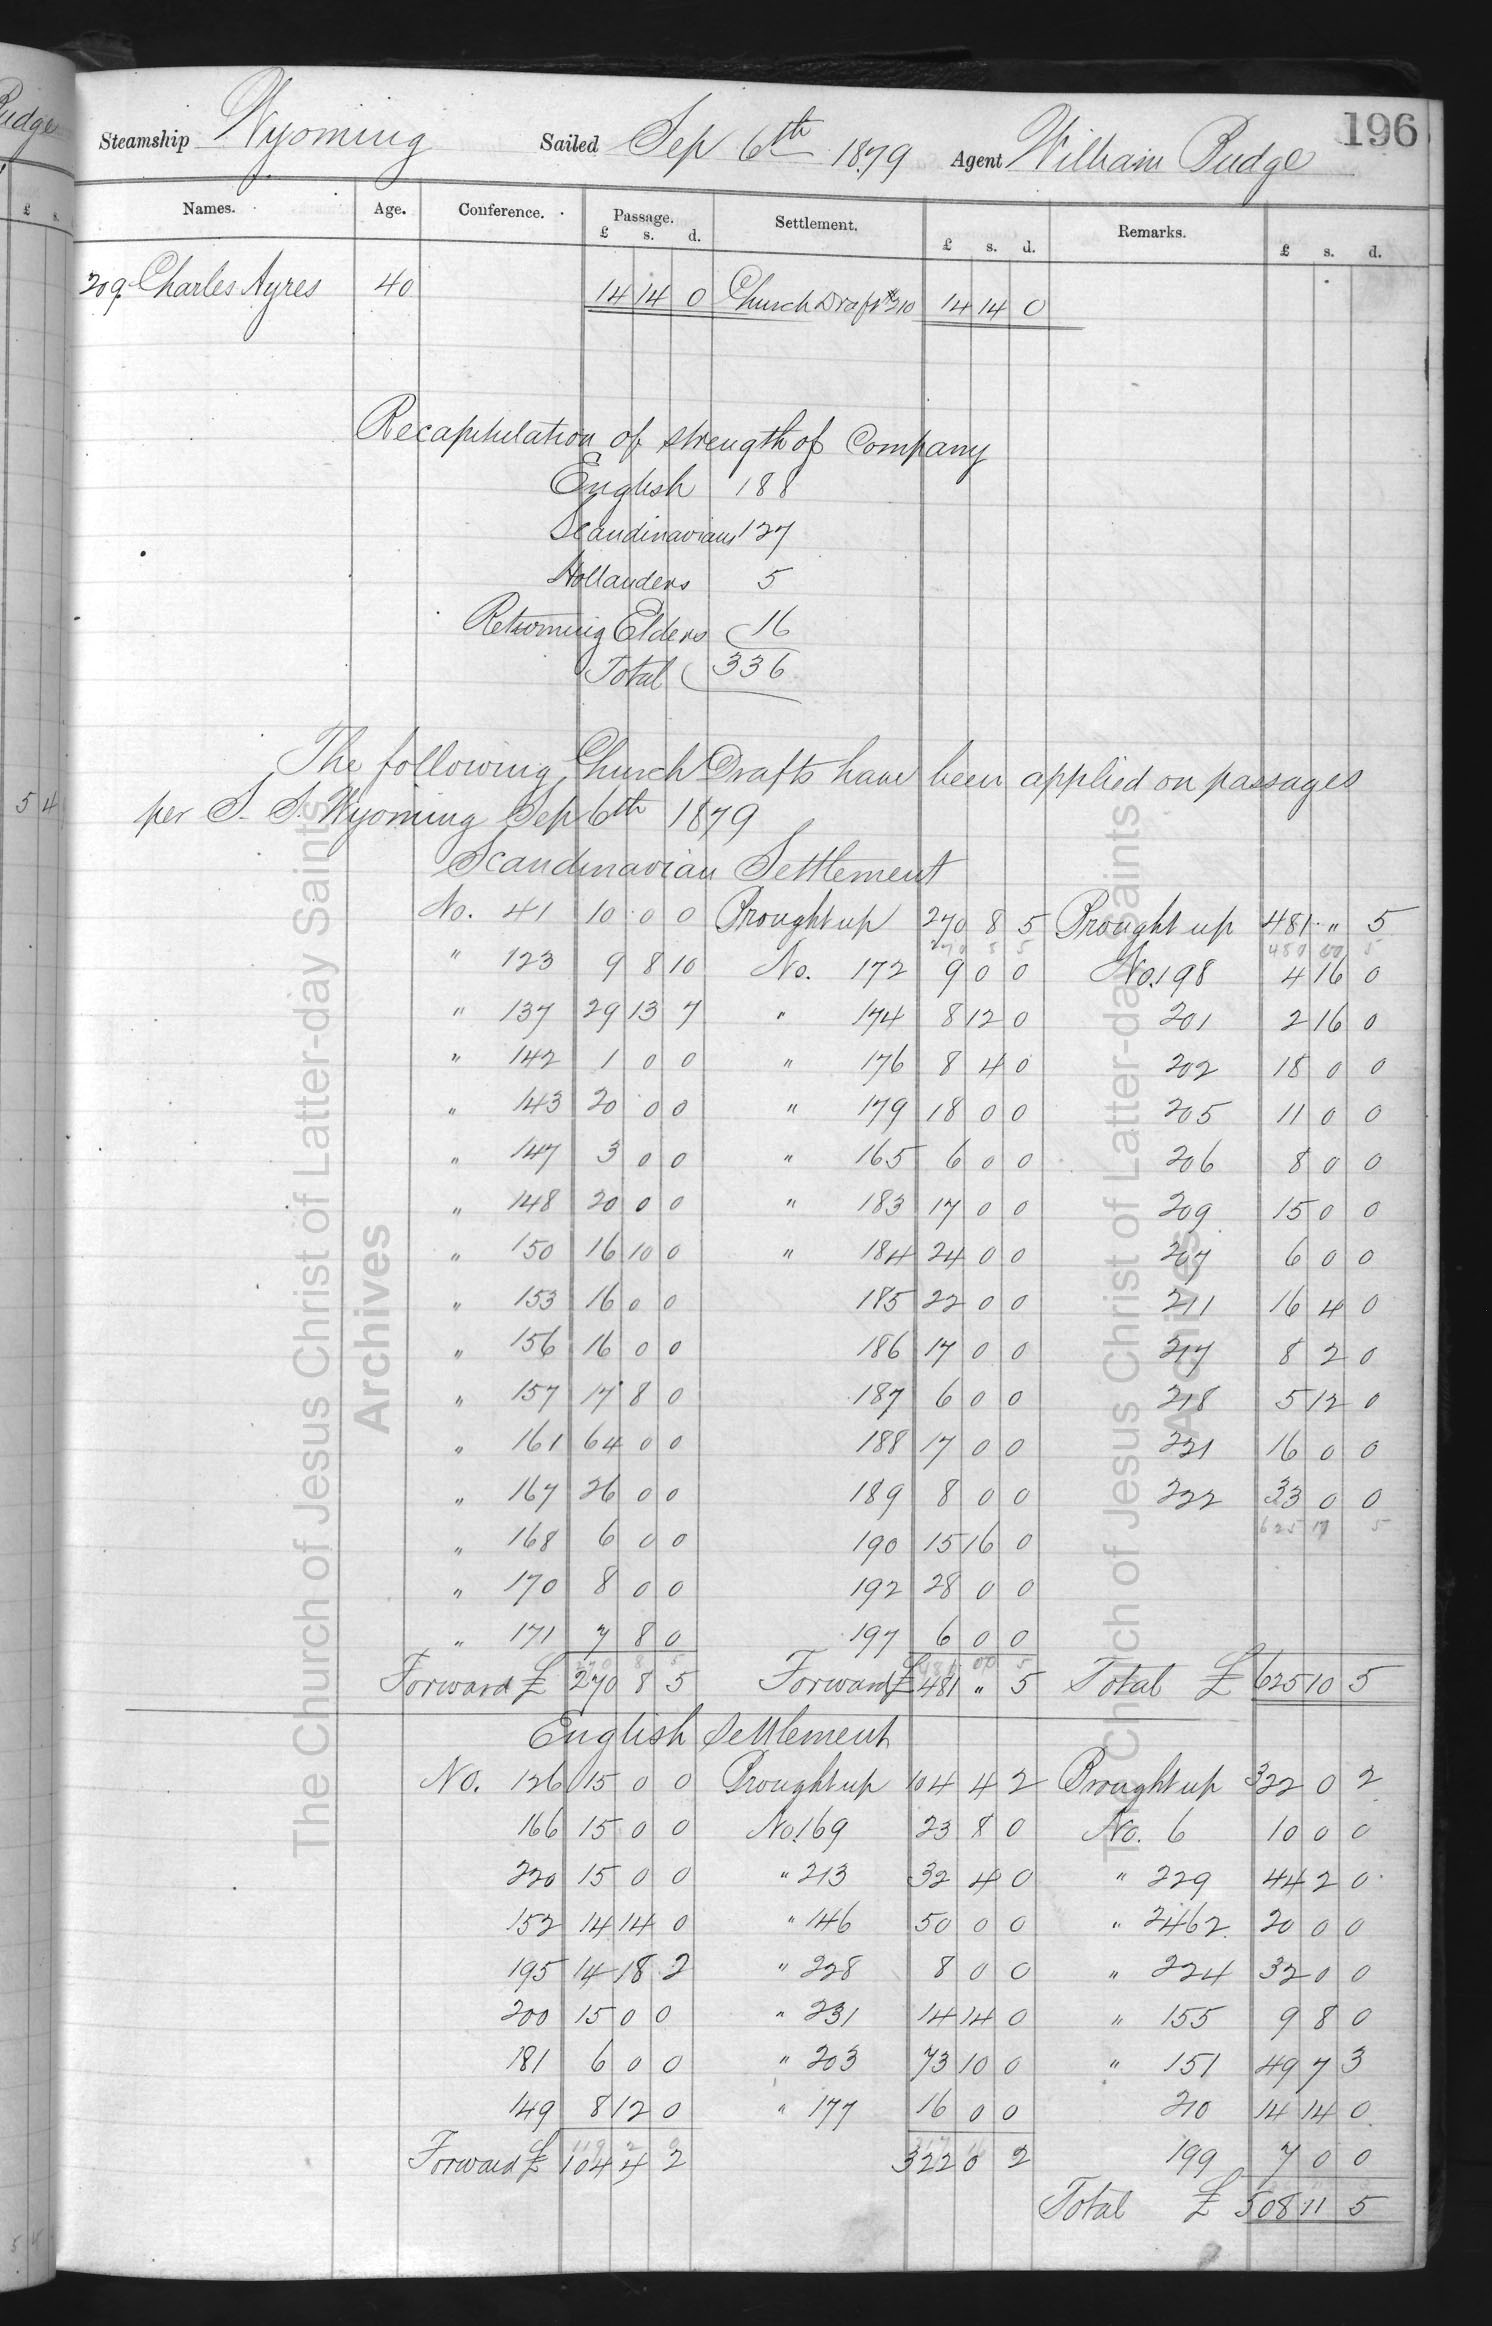 196
Steamship Wyoming Sailed Sep 6th 1879 Agent William Budge
Names. Age. Conference. Passage. Settlement. Remarks.
£ s. d. £ s. d. £ s. d.
209 Charles Ayres 40 14 14 0 Church Draft # 210 14 14 0
Recapitulation of strength of Company
English 188
Scandinavians 127
Hollanders 5
Returning Elders 16
Total 336
The following Church Drafts have been applied on passages
per S. S. Wyoming Sep 6th 1879
Scandinavian Settlement
No. 41 10 0 0 Brought up 270 8 5 Brought up 481 " 5
" 123 9 8 10 No. 172 9 0 0 No. 198 4 16 0
" 137 29 13 7 " 174 8 12 0 201 2 16 0
" 142 1 0 0 " 176 8 4 0 202 18 0 0
" 143 20 0 0 " 179 18 0 0 205 11 0 0
" 147 3 0 0 " 165 6 0 0 206 8 0 0
" 148 20 0 0 " 183 17 0 0 209 15 0 0
" 150 16 10 0 " 184 24 0 0 207 6 0 0
" 153 16 0 0 185 22 0 0 211 16 4 0
" 156 16 0 0 186 17 0 0 217 8 2 0
" 157 17 8 0 187 6 0 0 218 5 12 0
" 161 64 0 0 188 17 0 0 221 16 0 0
" 167 26 0 0 189 8 0 0 222 33 0 0
" 168 6 0 0 190 15 16 0 625 17 5
" 170 8 0 0 192 28 0 0
" 171 7 8 0 197 6 0 0
Forward £ 270 8 5 Forward £ 481 " 5 Total £ 625 10 5
English Settlement
No. 126 15 0 0 Brought up 104 4 2 Brought up 322 0 2
166 15 0 0 No. 169 23 8 0 No. 6 10 0 0
220 15 0 0 " 213 32 4 0 " 229 44 2 0
152 14 14 0 " 146 50 0 0 " 2462 20 0 0
195 14 18 2 " 228 8 0 0 " 224 32 0 0
200 15 0 0 " 231 14 14 0 " 155 9 8 0
181 6 0 0 " 203 73 10 0 " 151 49 7 3
149 8 12 0 " 177 16 0 0 210 14 14 0
Forward £ 104 4 2 322 0 2 199 7 0 0
Total £ 508 11 5
The Church of Jesus Christ of Latter-day Saints
Archives
The Church of Jesus Christ of Latter-day Saints
Archives